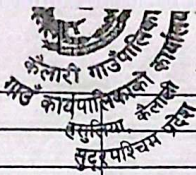 कैलारी गाउँपालिका
गाउँ कार्यपालिकाको कार्यालय
बसुलिया, कैलाली
सुदूरपश्चिम प्रदेश